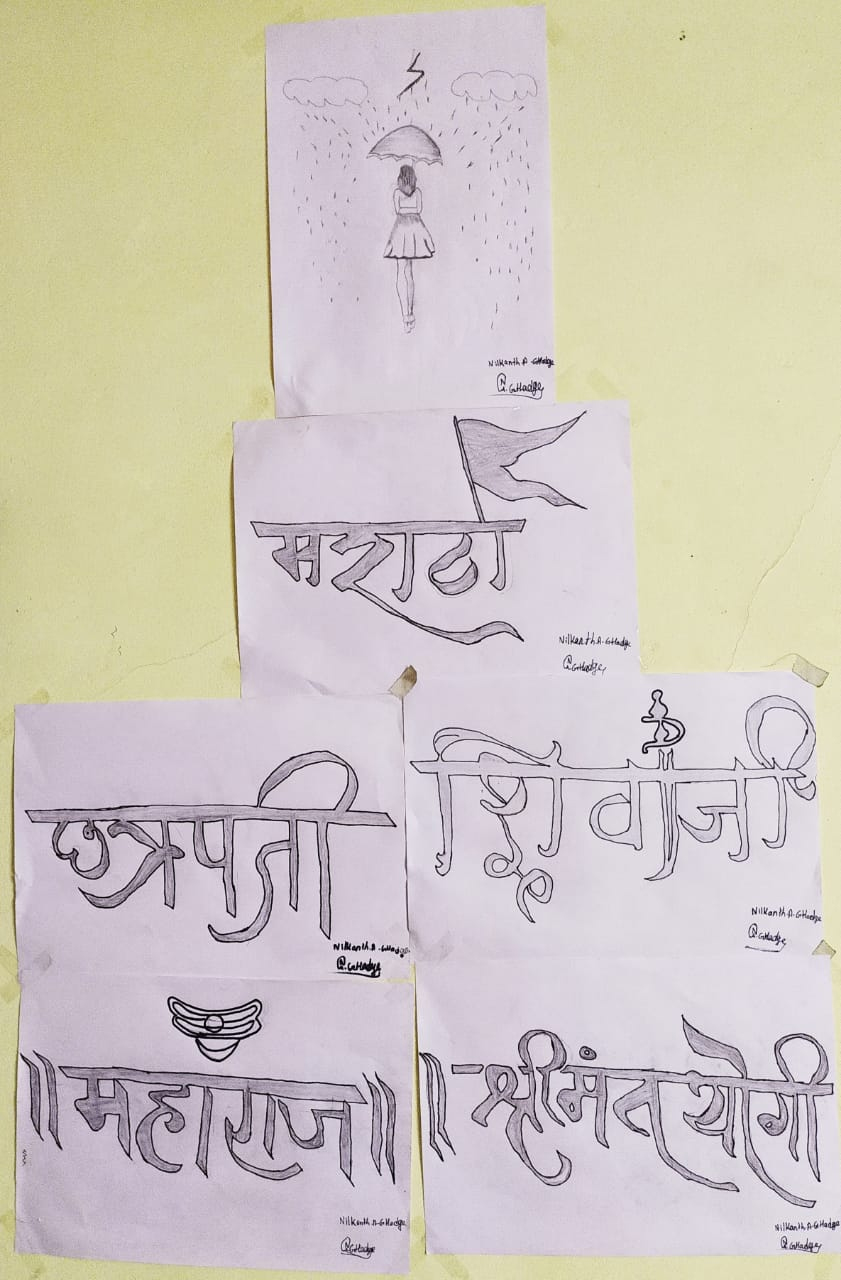 Nilkanth A. GHadge
GHadge
मराठा
Nilkanth A. GHadge
GHadge
छत्रपती
Nilkanth A. GHadge
GHadge
शिवाजी
Nilkanth A. GHadge
GHadge
॥ महाराज ॥
Nilkanth A. GHadge
GHadge
॥ श्रीमंत योगी
Nilkanth A. GHadge
GHadge